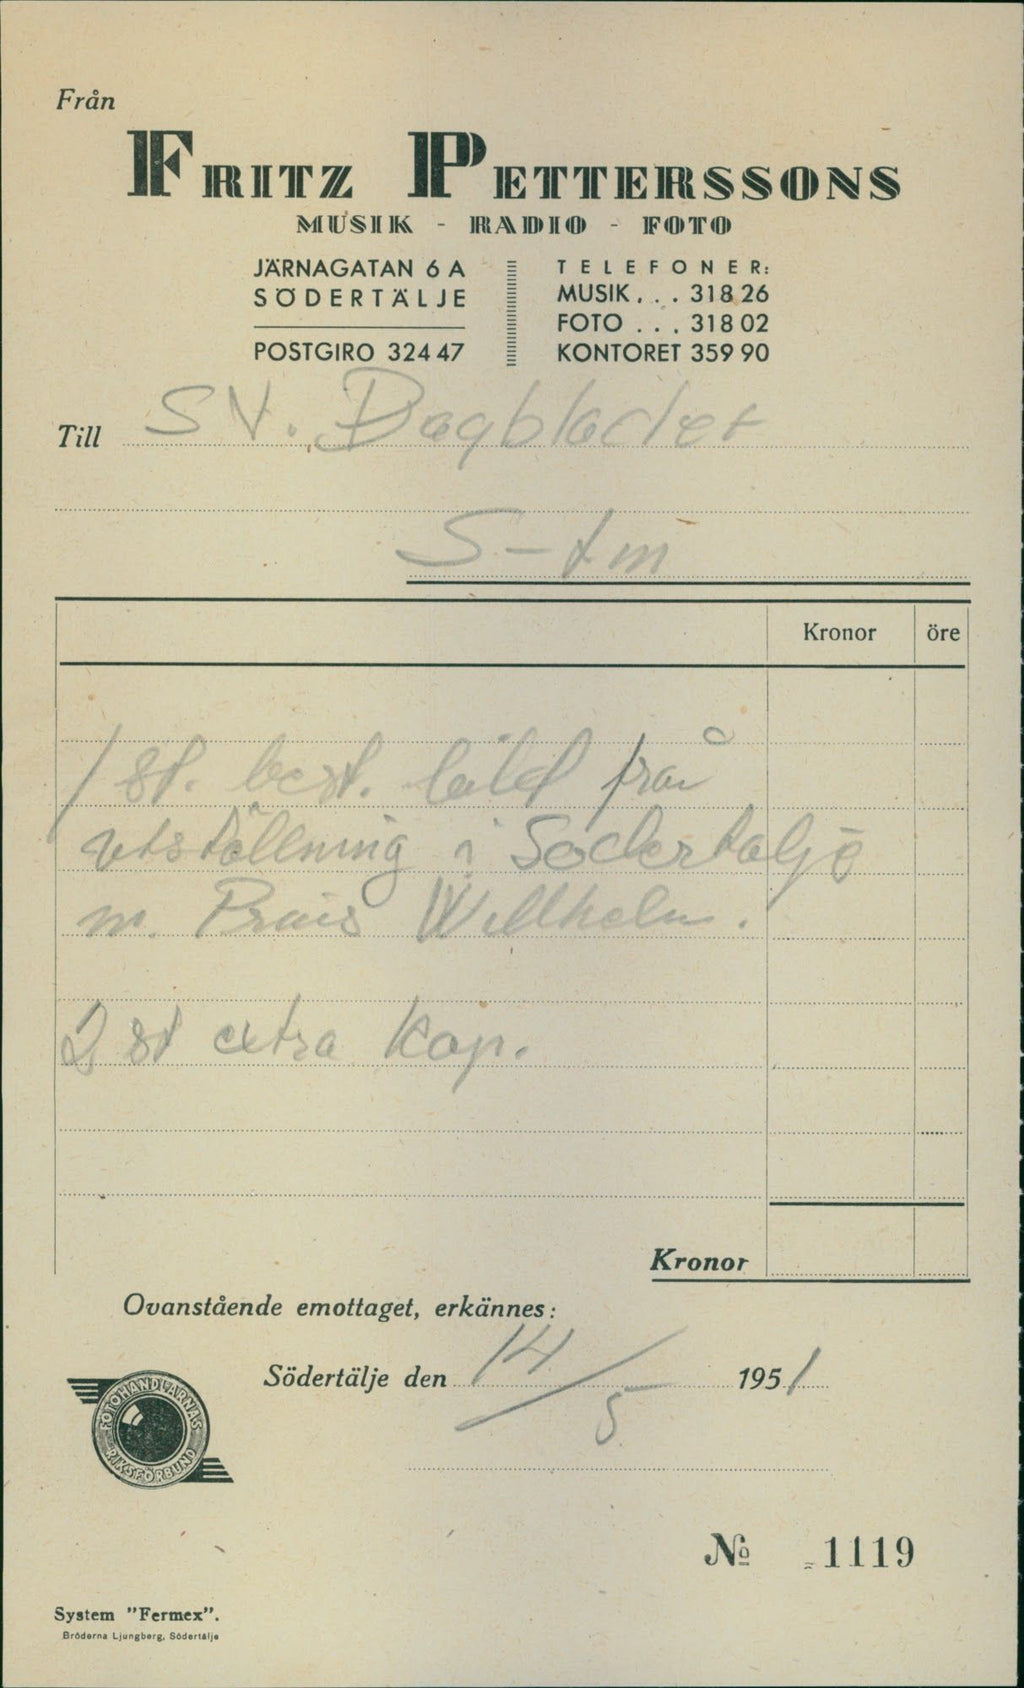 Från
FRITZ PETTERSSONS
MUSIK - RADIO - FOTO
JÄRNAGATAN 6 A
SÖDERTÄLJE
POSTGIRO 324 47
TELEFONER:
MUSIK . . . 318 26
FOTO . . . 318 02
KONTORET 359 90
Till SV. Dagbladet
S-tm
Kronor öre
1 st. best. bild från
utställning i Södertälje
m. Prins Willhelm.
2 st extra kop.
Kronor
Ovanstående emottaget, erkännes:
Södertälje den 14/5 1951
FOTOHANDLARNAS
RIKSFÖRBUND
No 1119
System "Fermex".
Bröderna Ljungberg, Södertälje